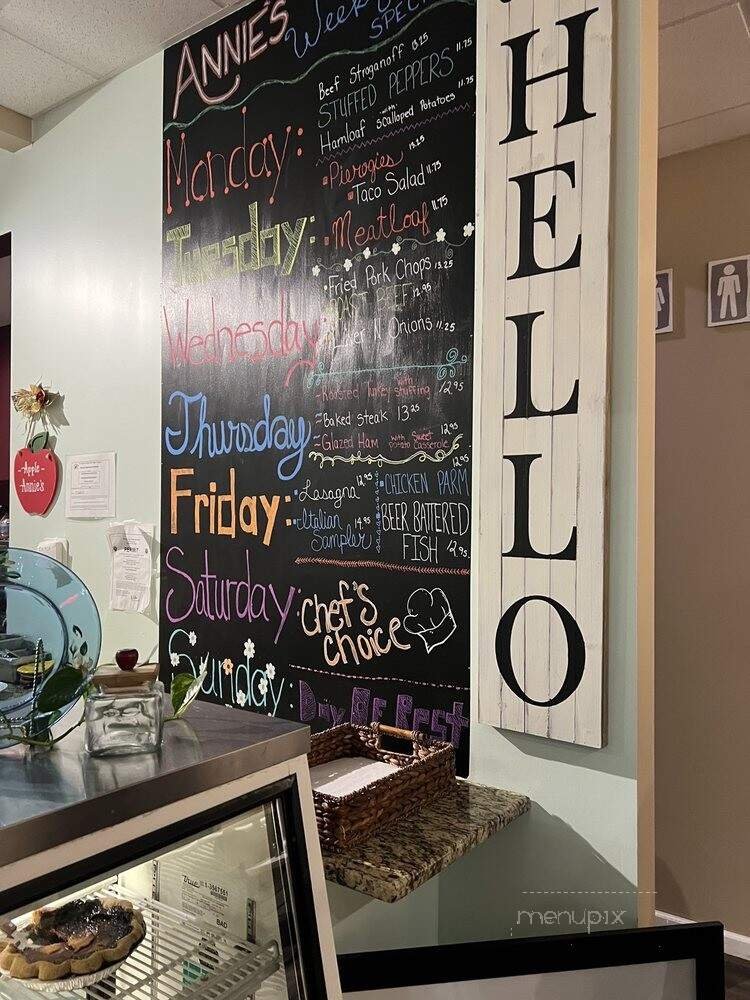 ANNIE'S Weekly
SPECI
Beef Stroganoff 13.25
STUFFED PEPPERS 11.75
Hamloaf with Scalloped Potatoes 11.75
Monday:
Pierogies 13.25
Taco Salad 11.75
Tuesday:
Meatloaf 11.75
Fried Pork Chops 13.25
ROAST BEEF 12.95
Wednesday:
Liver N Onions 11.25
Roasted Turkey with stuffing 12.95
Thursday
Baked Steak 13.25
Glazed Ham with Sweet Potato Casserole 12.95
Friday:
Lasagna 12.95
Italian Sampler 14.95
CHICKEN PARM 12.95
BEER BATTERED
FISH 12.95
Saturday:
Chef's
choice
Sunday:
Day Of Rest
HELLO
-Apple-
Annie's
PERMIT
True
1-3567551
BAD
menupix